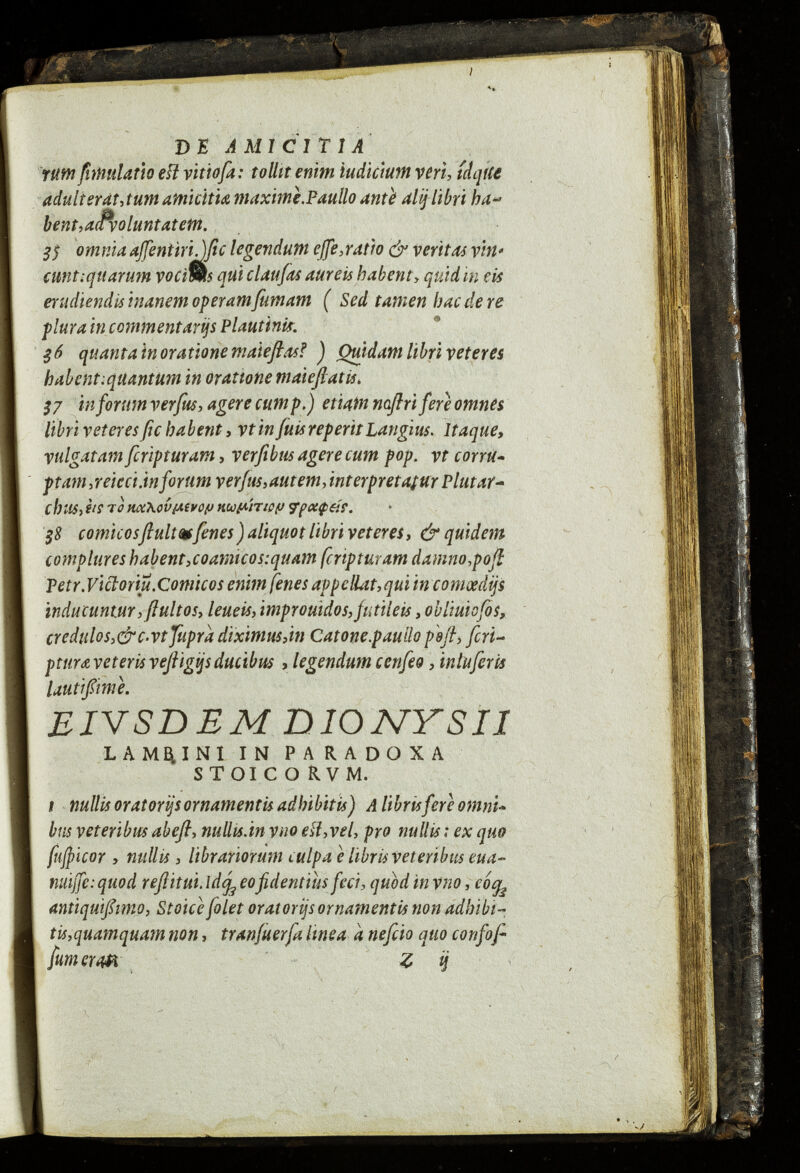 DE AMICITIA
rum simulatio est vitiosa: tollit enim iudicium veri, idque
adulterat, tum amicitiæ maximè. Paullo antè alij libri ha-
bent, ad voluntatem.
35 omnia assentiri.) sic legendum esse, ratio & veritas vin-
cunt: quarum voci qui clausas aureis habent, quid in eis
erudiendis inanem operam sumam ( Sed tamen hac de re
plura in commentarijs Plautinis.
36 quanta in oratione maiestas? ) Quidam libri veteres
habent: quantum in oratione maiestatis.
37 in forum versus, agere cum p.) etiam nostri ferè omnes
libri veteres sic habent, vt in suis reperit Langius. Itaque,
vulgatam scripturam, versibus agere cum pop. vt corru-
ptam, reieci. in forum versus, autem, interpretatur Plutar-
chus, εἰς τὸ καλούμενον κωμίτιον γραφείς.
38 comicos stultos senes ) aliquot libri veteres, & quidem
complures habent, coamicos: quam scripturam damno, post
Petr. Victoriũ. Comicos enim senes appellat, qui in comœdijs
inducuntur, stultos, leueis, improuidos, futileis, obliuiosos,
credulos, &c. vt suprà diximus, in Catone. paullo pòst, scri-
pturæ veteris vestigijs ducibus, legendum censeo, inluseris
lautissimè.
EIVSDEM DIONYSII
LAMBINI IN PARADOXA
STOICORVM.
1 nullis oratorijs ornamentis adhibitis) A libris ferè omni-
bus veteribus abest, nullis. in vno est, vel, pro nullis: ex quo
suspicor, nullis, librariorum culpa è libris veteribus eua-
nuisse: quod restitui. Idq; eo fidentiùs feci, quòd in vno, eóq;
antiquissimo, Stoicè solet oratorijs ornamentis non adhibi-
tis, quamquam non, transuersa linea à nescio quo confos-
sum erat Z ij